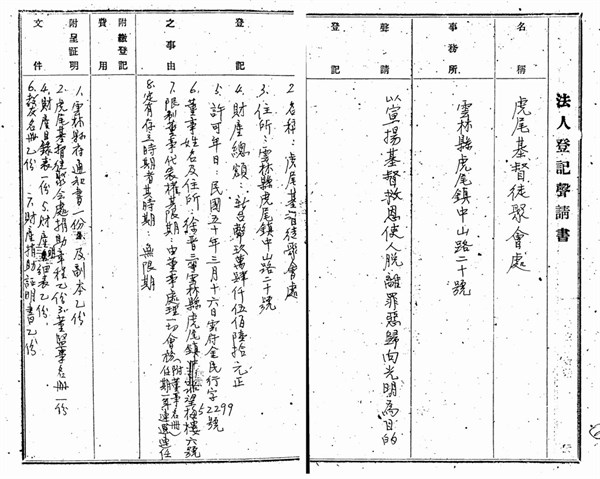 法人登記聲請書
名稱
虎尾基督徒聚會處
事務所
雲林縣虎尾鎮中山路二十號
聲請
登記
以宣揚基督救恩使人脫離罪惡歸向光明為目的
登記之事由
2. 名稱：虎尾基督徒聚會處
3. 住所：雲林縣虎尾鎮中山路二十號
4. 財產總額：新台幣玖萬肆仟伍佰陸拾元正
5. 許可年日：民國五十年三月十六日雲府全民行字52299號
6. 董事姓名及住所：徐晋三等雲林縣虎尾鎮 望梅樓六號
（附董事名冊）
7. 限制董事代表權其限期：由董事處理一切會務任期一年連選連任
8. 定有存立時期者其時期：無限期
附繳登記費用
附呈証明文件
1. 雲林縣府通知書一份及副本乙份
2. 虎尾基督徒聚會處捐助章程乙份 3. 董監事名冊一份
4. 財產目錄表一份 5. 財產明細表乙份
6. 名冊乙份 7. 財產捐助証明書乙份